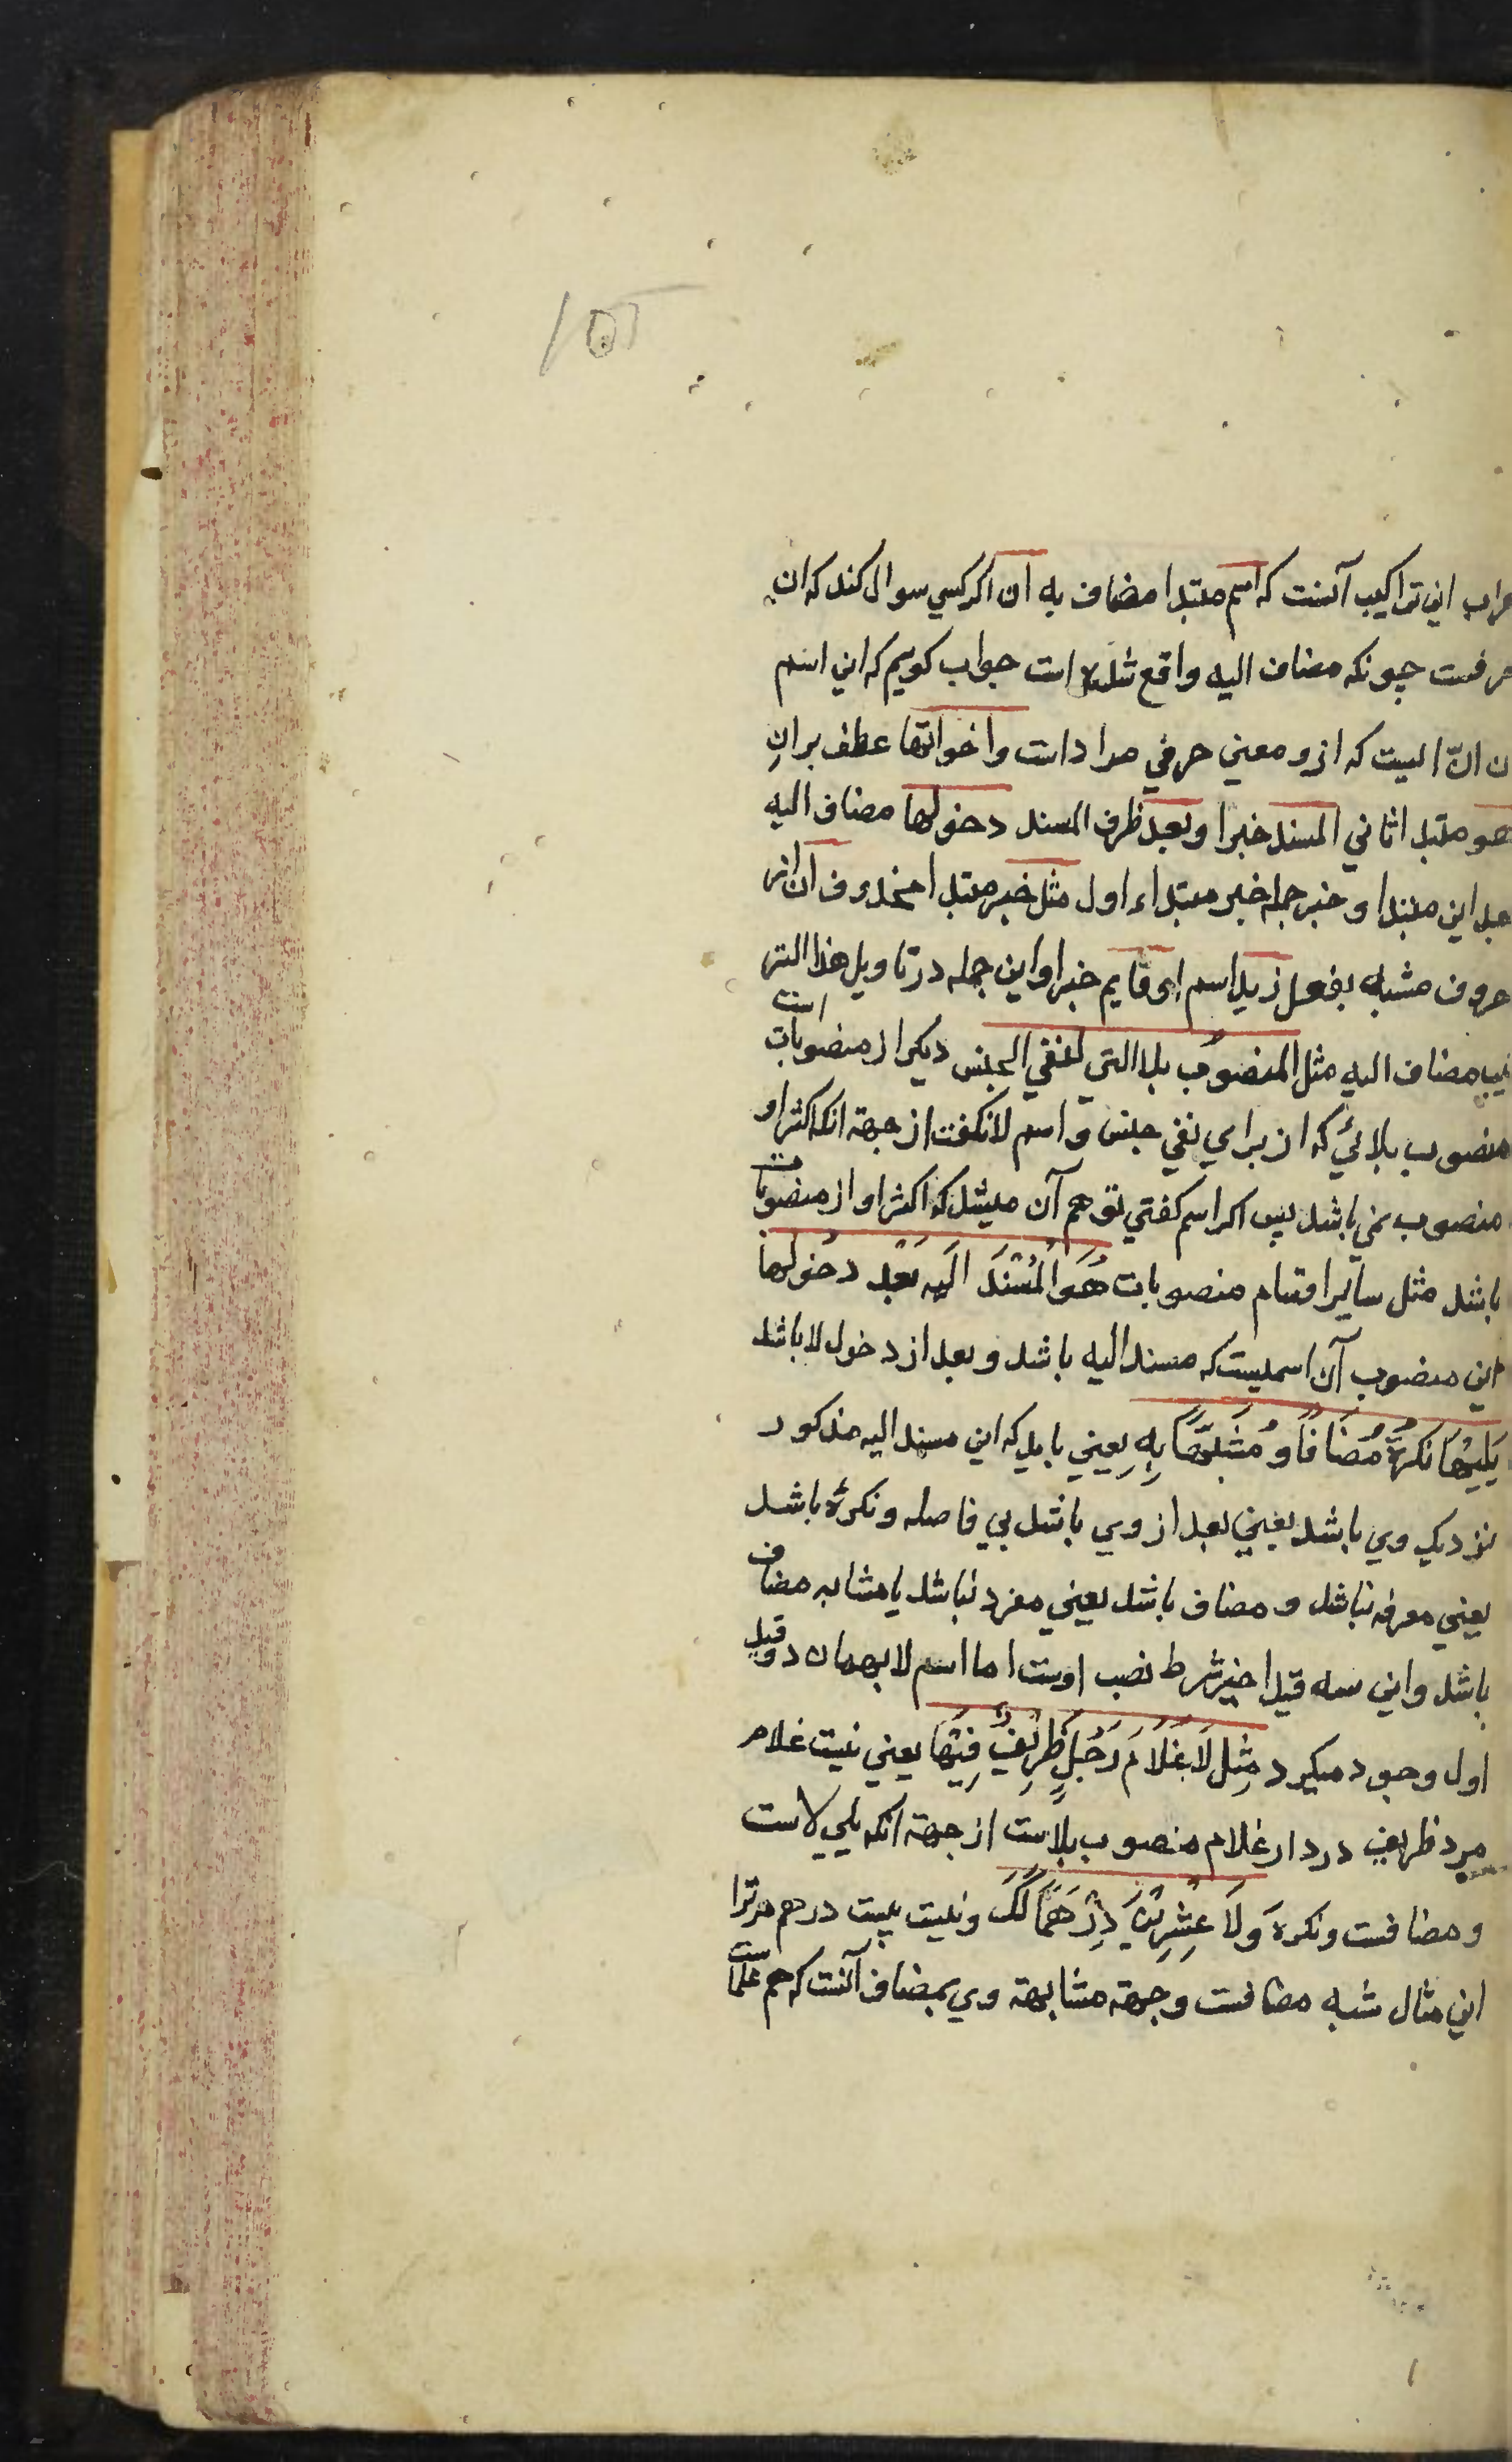 اعراب این تراکیب آنست که اسم مبتدا مضاف به ان اکر کسي سوال کند که ان
حرفست چونکه مضاف الیه واقع شده است جواب کویم که این اسم
ان انّ الیست که ازو معني حرفي مراد است واخواتها عطف بران
هو مبتدا ثاني المسند خبرا وبعد ظرف المسند دخولها مضاف الیه
بعد این مبتدا و خبر جمله خبر مبتداء اول مثل خبر مبتدا محذوف ان از
حروف مشبه بفعل زید اسم او قایم خبر او این جمله در تاویل هذا التر
کیب مضاف الیه مثل المنصوب بلا التي لنفي الجنس دیکر از منصوبات است
منصوب بلائي که از براي نفي جنس و اسم لا نکفت از جهة انکه اکثر او
منصوب نمي باشد پس اکر اسم کفتي توهم آن میشد که اکثر او از منصوبات
باشد مثل سایر اقسام منصوبات هُوَ الْمُسْنَدُ اِلَیه بَعْدَ دخولها
این منصوب آن اسمیست که مسند الیه باشد و بعد از دخول لا باشد
یَلِیْهَا نَکِرَةً مُضَافًا وُ مُشَبَّهًا بِهِ یعیني باید که این مسند الیه مذکور
نزدیک وي باشد یعني بعد از وي باشد بي فاصله و نکرۀ باشد
یعني معرفه نباشد و مضاف باشد یعني مفرد نباشد یا مشابه مضاف
باشد واین سه قید اخیر شرط نصب اوست اما اسم لا بهمان دو قید
اول وجود میکیرد مِثل لَا غُلَامَ رَجُلٍ ظَرِیْفٌ فِیْهَا یعني نیست غلام
مرد ظریف در دار غلام منصوب بلاست از جهة انکه یلي لاست
و مضافست و نکره وَلَا عِشْرِیْنَ دِرْهَمًا لَکَ و نیست بیست درهم مر ترا
این مثال شبه مضافست وجهة مشابهة وي بمضاف آنست که هم علامت